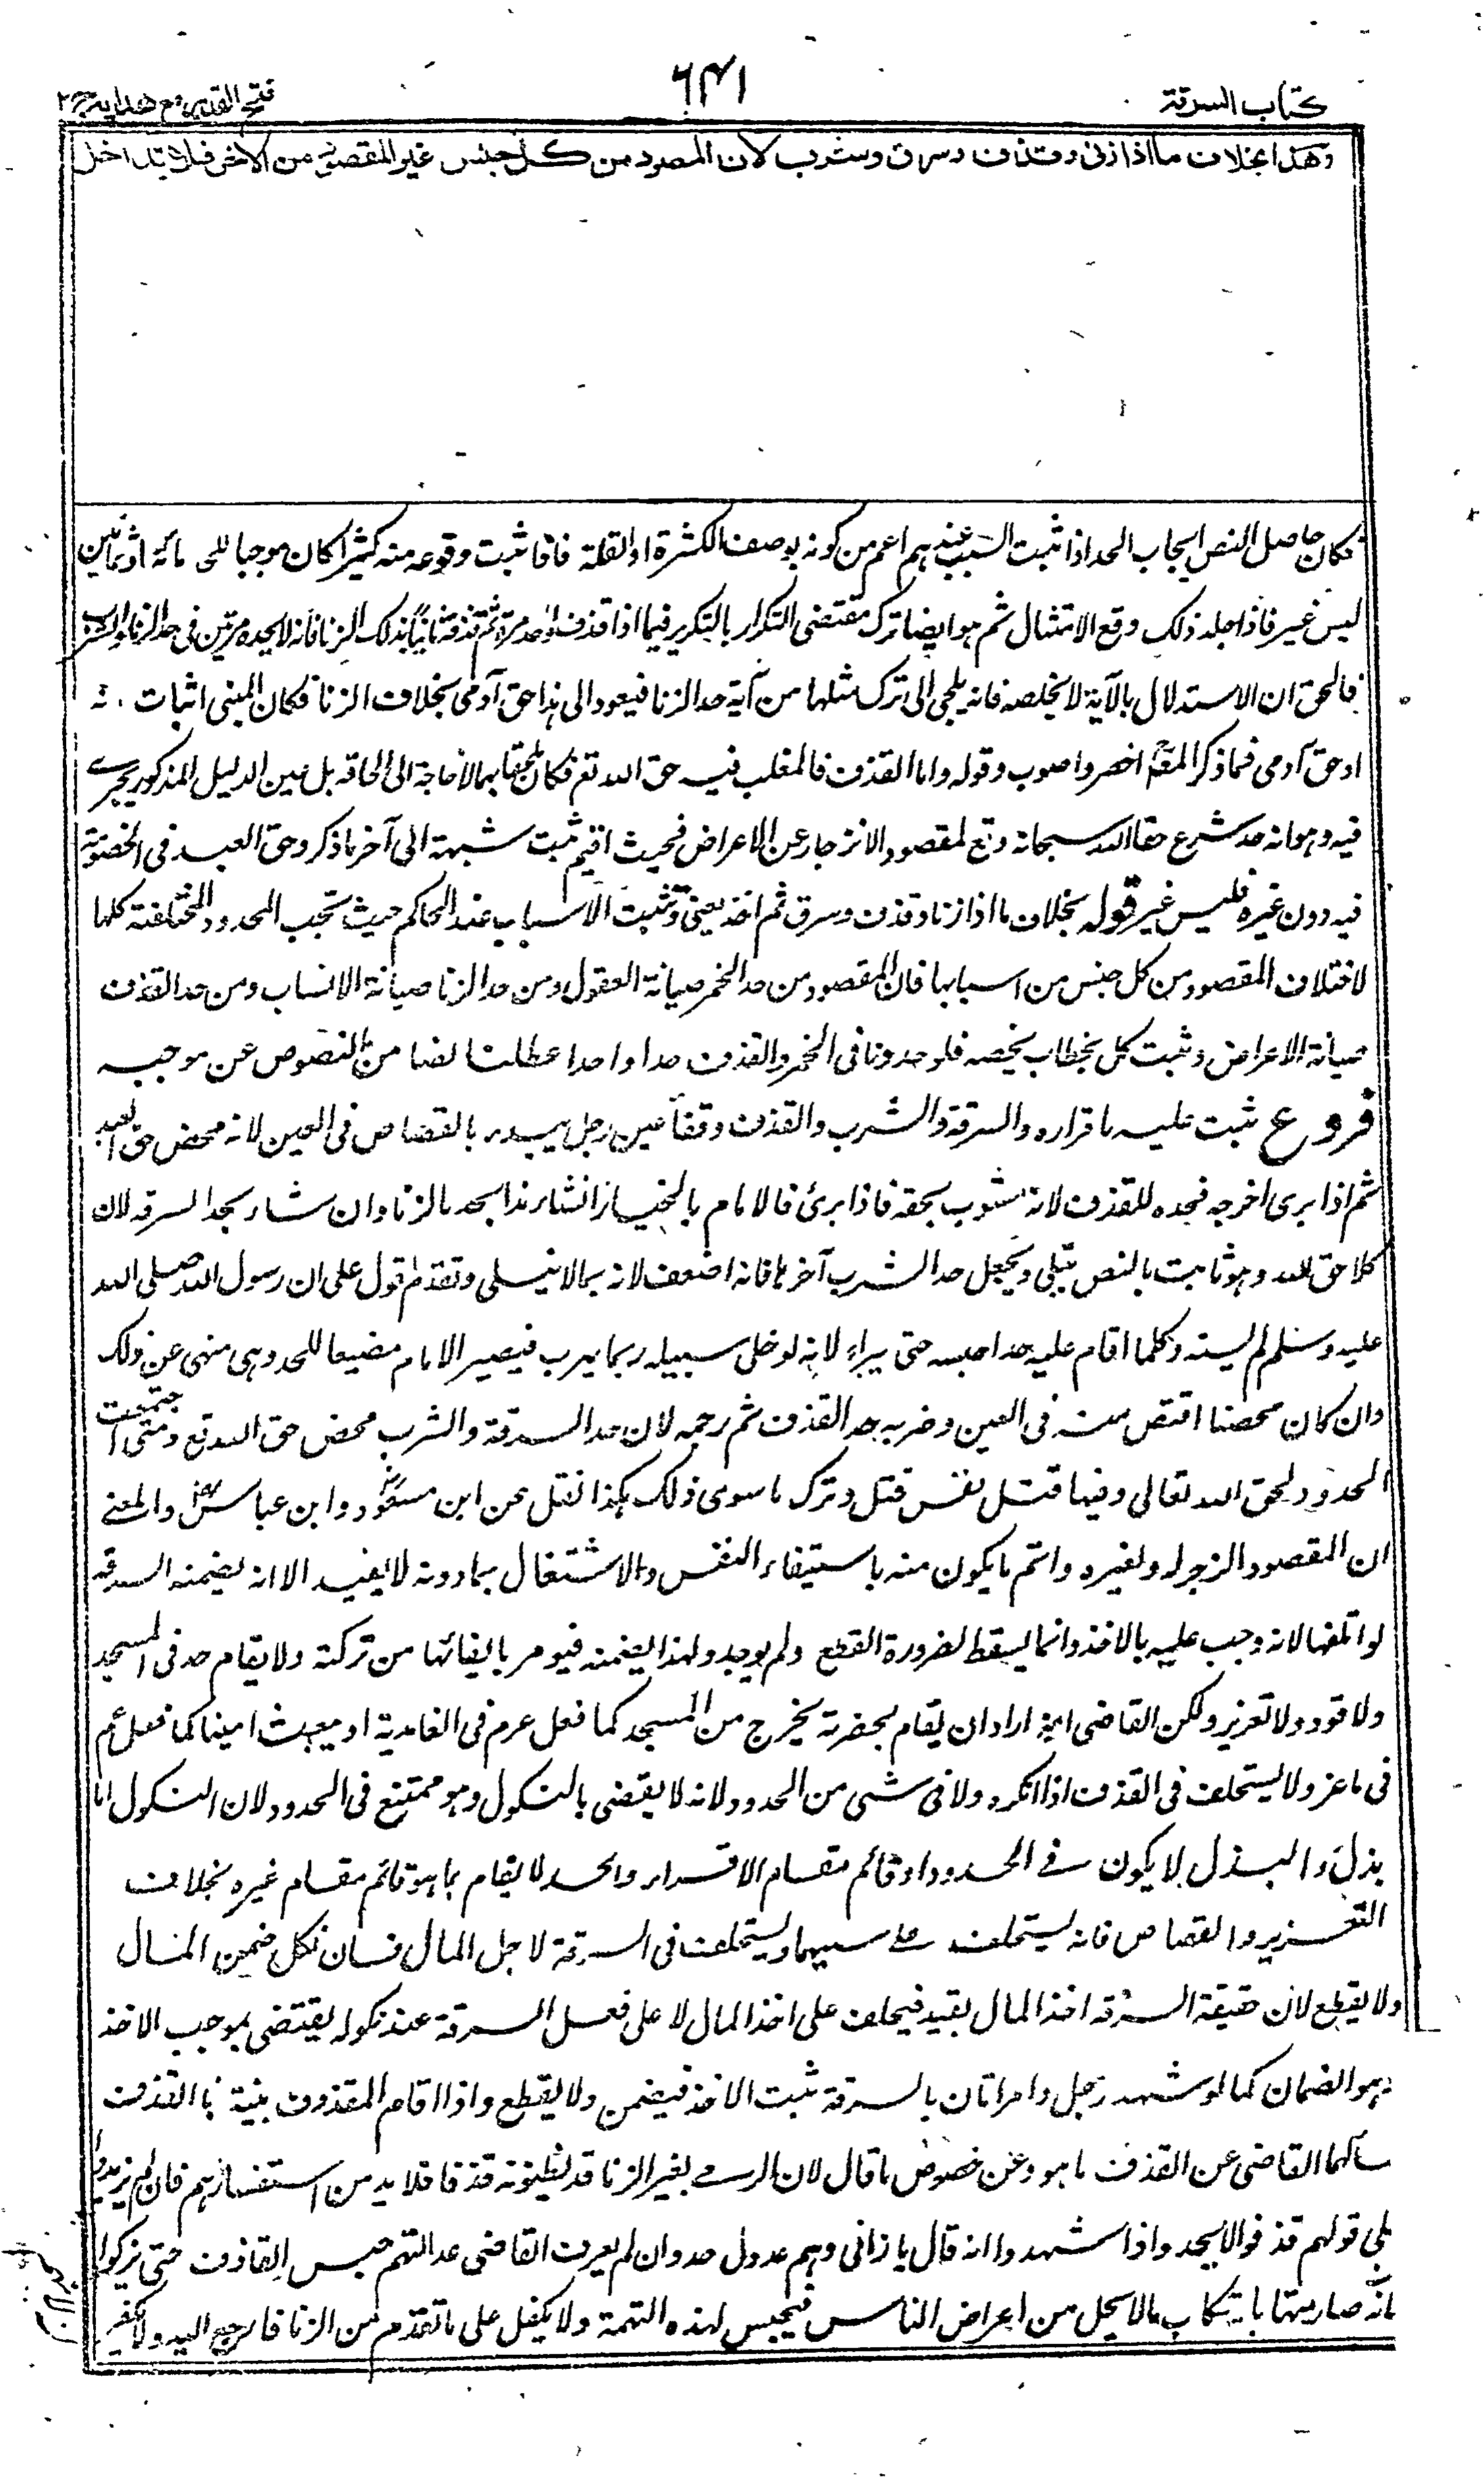 كتاب السرقة
٦٤١
فتح القدير مع هدايه ج٢
وهذا بخلاف ما اذا زنى وقذف وسرق وشرب لان المقصود من كل جنس غير المقصود من الاخر فلا يتداخل
فكان حاصل النص ايجاب الحد اذا ثبت السبب عندهم اعم من كونه بوصف الكثرة او القلة فاذا ثبت وقوعه منه كثيرا كان موجبا للحد مائة او ثمانين
ليس غير فاذا جلد ذلك وقع الامتثال ثم هو ايضا ترك مقتضى التكرار بالتكرير فيما اذا قذف واحدا مرة ثم قذفه ثانيا بذلك الزنا فانه لا يحده مرتين فى حد الزنا والشرب
فالحق ان الاستدلال بالآية لا يخلصه فانه يلجئ الى ترك مثلها من آية حد الزنا فيعود الى هذا حق آدمى بخلاف الزنا فكان المبنى اثبات
او حق آدمى فما ذكر المص اخصر واصوب وقوله واما القذف فالمغلب فيه حق الله تع فكان ملحقا بهما لا حاجة الى الحاقه بل عين الدليل المذكور يجرى
فيه وهو انه حد شرع حقا لله سبحانه وتع لمقصود الانزجار عن الاعراض فحيث اقيم ثبت شبهة الى آخر ما ذكر وحق العبد فى الخصومة
فيه دون غيره فليس غير قوله بخلاف ما اذا زنا وقذف وسرق ثم اخذ يعنى وتثبت الاسباب عند الحاكم حيث تجب الحدود المختلفة كلها
لاختلاف المقصود من كل جنس من اسبابها فان المقصود من حد الخمر صيانة العقول ومن حد الزنا صيانة الانساب ومن حد القذف
صيانة الاعراض وثبت كل بخطاب يخصه فلو حددنا فى الخمر والقذف حدا واحدا عطلنا نصا من النصوص عن موجبه
فروع ثبت عليه باقراره والسرقة والشرب والقذف وفقأ عين رجل يبدء بالقصاص فى العين لانه محض حق العبد
ثم اذا برئ اخرجه فيحده للقذف لانه مشوب بحقه فاذا برئ فالامام بالخيار ان شاء بدا بحد الزنا وان شاء بحد السرقه لان
كلا حق لله وهو ثابت بالنص يتلى ويجعل حد الشرب آخرها فانه اضعف لانه بما لا يتلى وتقدم قول على ان رسول الله صلى الله
عليه وسلم لم يسنه وكلما اقام عليه حدا حبسه حتى يبراء لانه لو خلى سبيله ربما يهرب فيصير الامام مضيعا للحد وهى منهى عن ذلك
وان كان محصنا اقتص منه فى العين وضربه حد القذف ثم رجمه لان حد السرقة والشرب محض حق الله تع ومتى اجتمعت
الحدود لحق الله تعالى وفيها قتل نفس قتل وترك ما سوى ذلك هكذا نقل عن ابن مسعود وابن عباس والمعنى
ان المقصود الزجر له ولغيره واتم ما يكون منه باستيفاء النفس والاشتغال بما دونه لا يفيد الا انه يضمنه السرقة
لو اتلفها لانه وجب عليه بالاخذ وانما يسقط لضرورة القطع ولم يوجد ولهذا يضمنه فيومر بايفائها من تركته ولا يقام حد فى المسجد
ولا قود ولا تعزير ولكن القاضى اذا اراد ان يقام بحضرته يخرج من المسجد كما فعل عرم فى الغامدية او يبعث امينا كما فعل عم
فى ماعز ولا يستحلف فى القذف اذا انكره ولا فى شى من الحدود لانه لا يقضى بالنكول وهو ممتنع فى الحدود لان النكول اما
بذل والبذل لا يكون فى الحدود او قائم مقام الاقرار والحد لا يقام بما هو قائم مقام غيره بخلاف
التعزير والقصاص فانه يستحلف على سببهما ويستحلف فى السرقة لاجل المال فان نكل ضمن المال
ولا يقطع لان حقيقة السرقه اخذ المال بقيد فيحلف على اخذ المال لا على فعل السرقة عند نكوله يقتضى بموجب الاخذ
وهو الضمان كما لو شهد رجل وامراتان بالسرقة ثبت الاخذ فيضمن ولا يقطع واذا اقام المقذوف بينة بالقذف
سالهما القاضى عن القذف ما هو وعن خصوص ما قال لان الرمى بغير الزنا قد يظنونه قذفا فلا بد من استفسارهم فان لم يزيدوا
على قولهم قذفه لا يحد واذا شهدوا انه قال يا زانى وهم عدول حد وان لم يعرف القاضى عدالتهم حبس القاذف حتى يزكوا
لانه صار متهما بارتكاب ما لا يحل من اعراض الناس فيحبس لهذه التهمة ولا يكفل على ما تقدم من الزنا فارجع اليه ولا تكفير